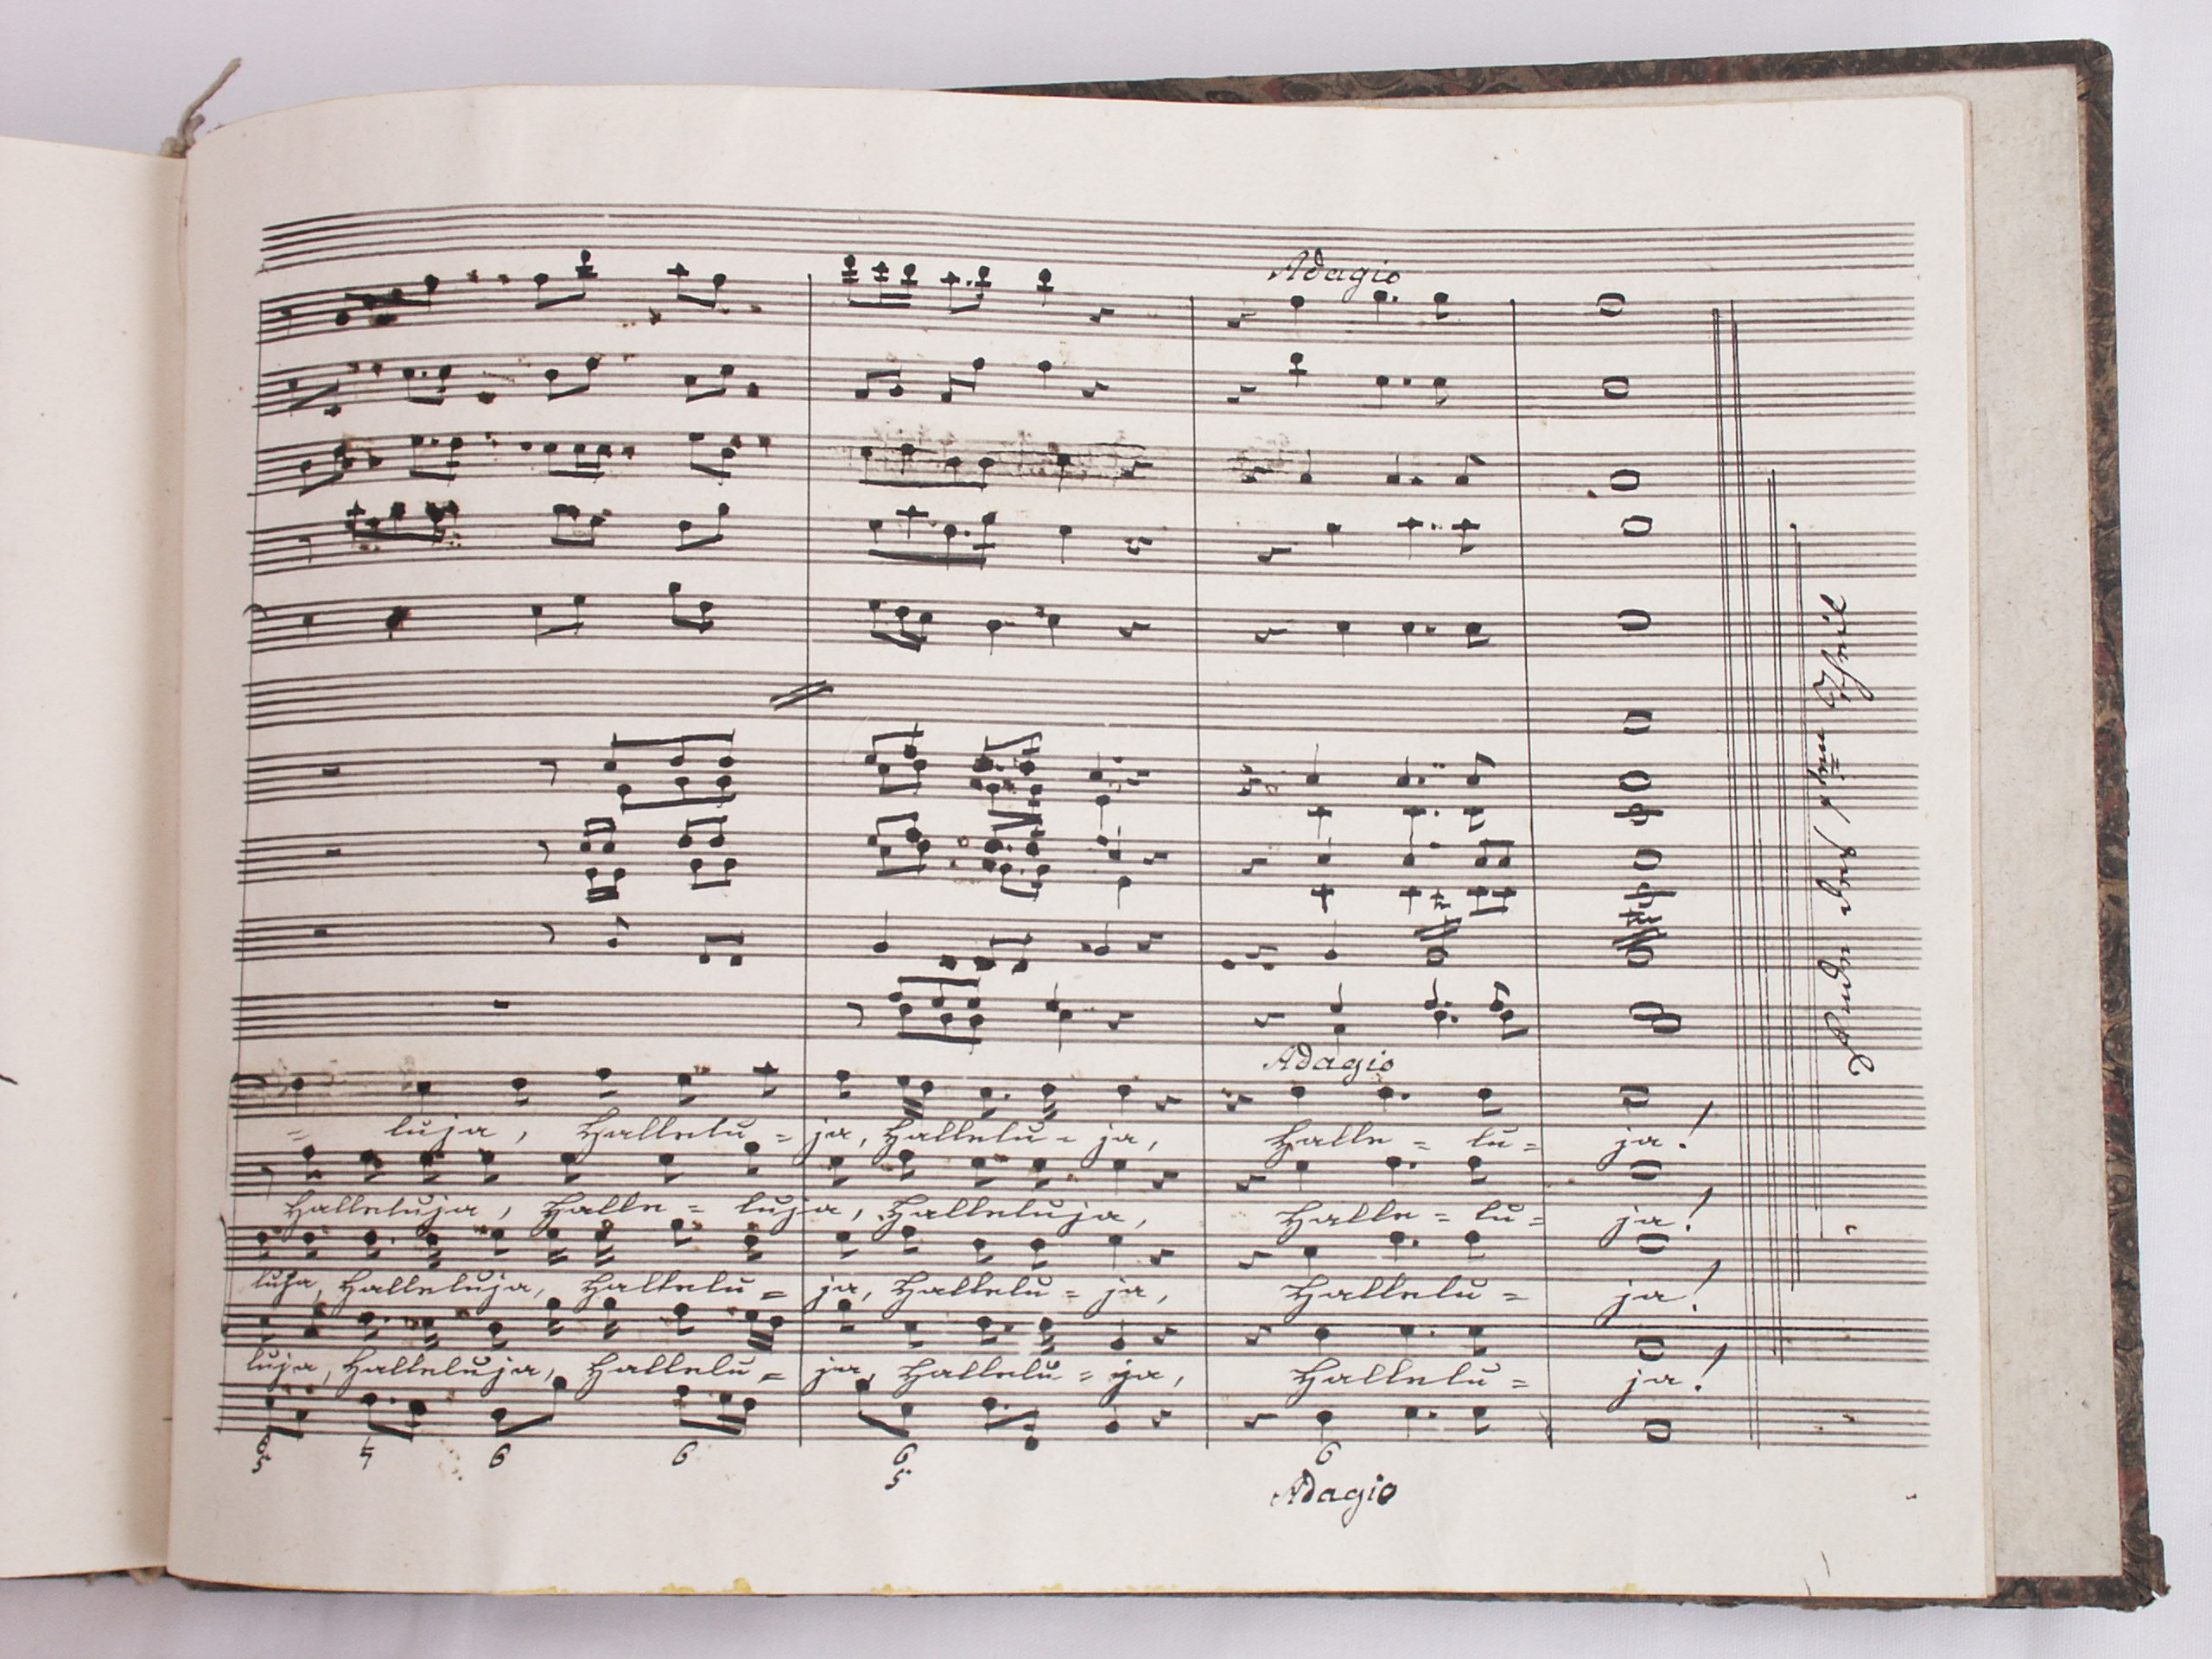 Adagio
Adagio
= luja, Hallelu = ja, Hallelu = ja, Halle = lu = ja!
Halleluja, Halle = luja, Halleluja, Halle = lu = ja!
luja, Halleluja, Hallelu = ja, Hallelu = ja, Hallelu = ja!
luja, Halleluja, Hallelu = ja, Hallelu = ja, Hallelu = ja!
6 5 4 6 6 6 5 6
Adagio
Ende des 1ten Theil